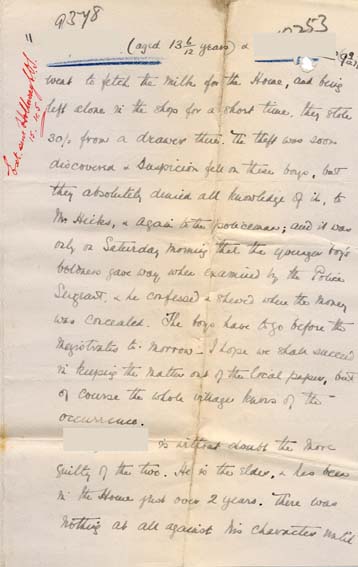 9378
10253
(aged 13 6/12 years) &
went to fetch the milk for the Home, and being
left alone in the shop for a short time, they stole
30/- from a drawer there. The theft was soon
discovered & suspicion fell on these boys, but
they absolutely denied all knowledge of it, to
Mr Hicks, & again to the policeman; and it was
only on Saturday morning that the younger boy's
boldness gave way when examined by the Police
Sergeant, & he confessed & shewed where the money
was concealed. The boys have to go before the
Magistrates to-morrow - I hope we shall succeed
in keeping the matter out of the local papers, but
of course the whole village knows of the
occurrence.
is without doubt the more
guilty of the two. He is the elder, & has been
in the Home just over 2 years. There was
nothing at all against his character until